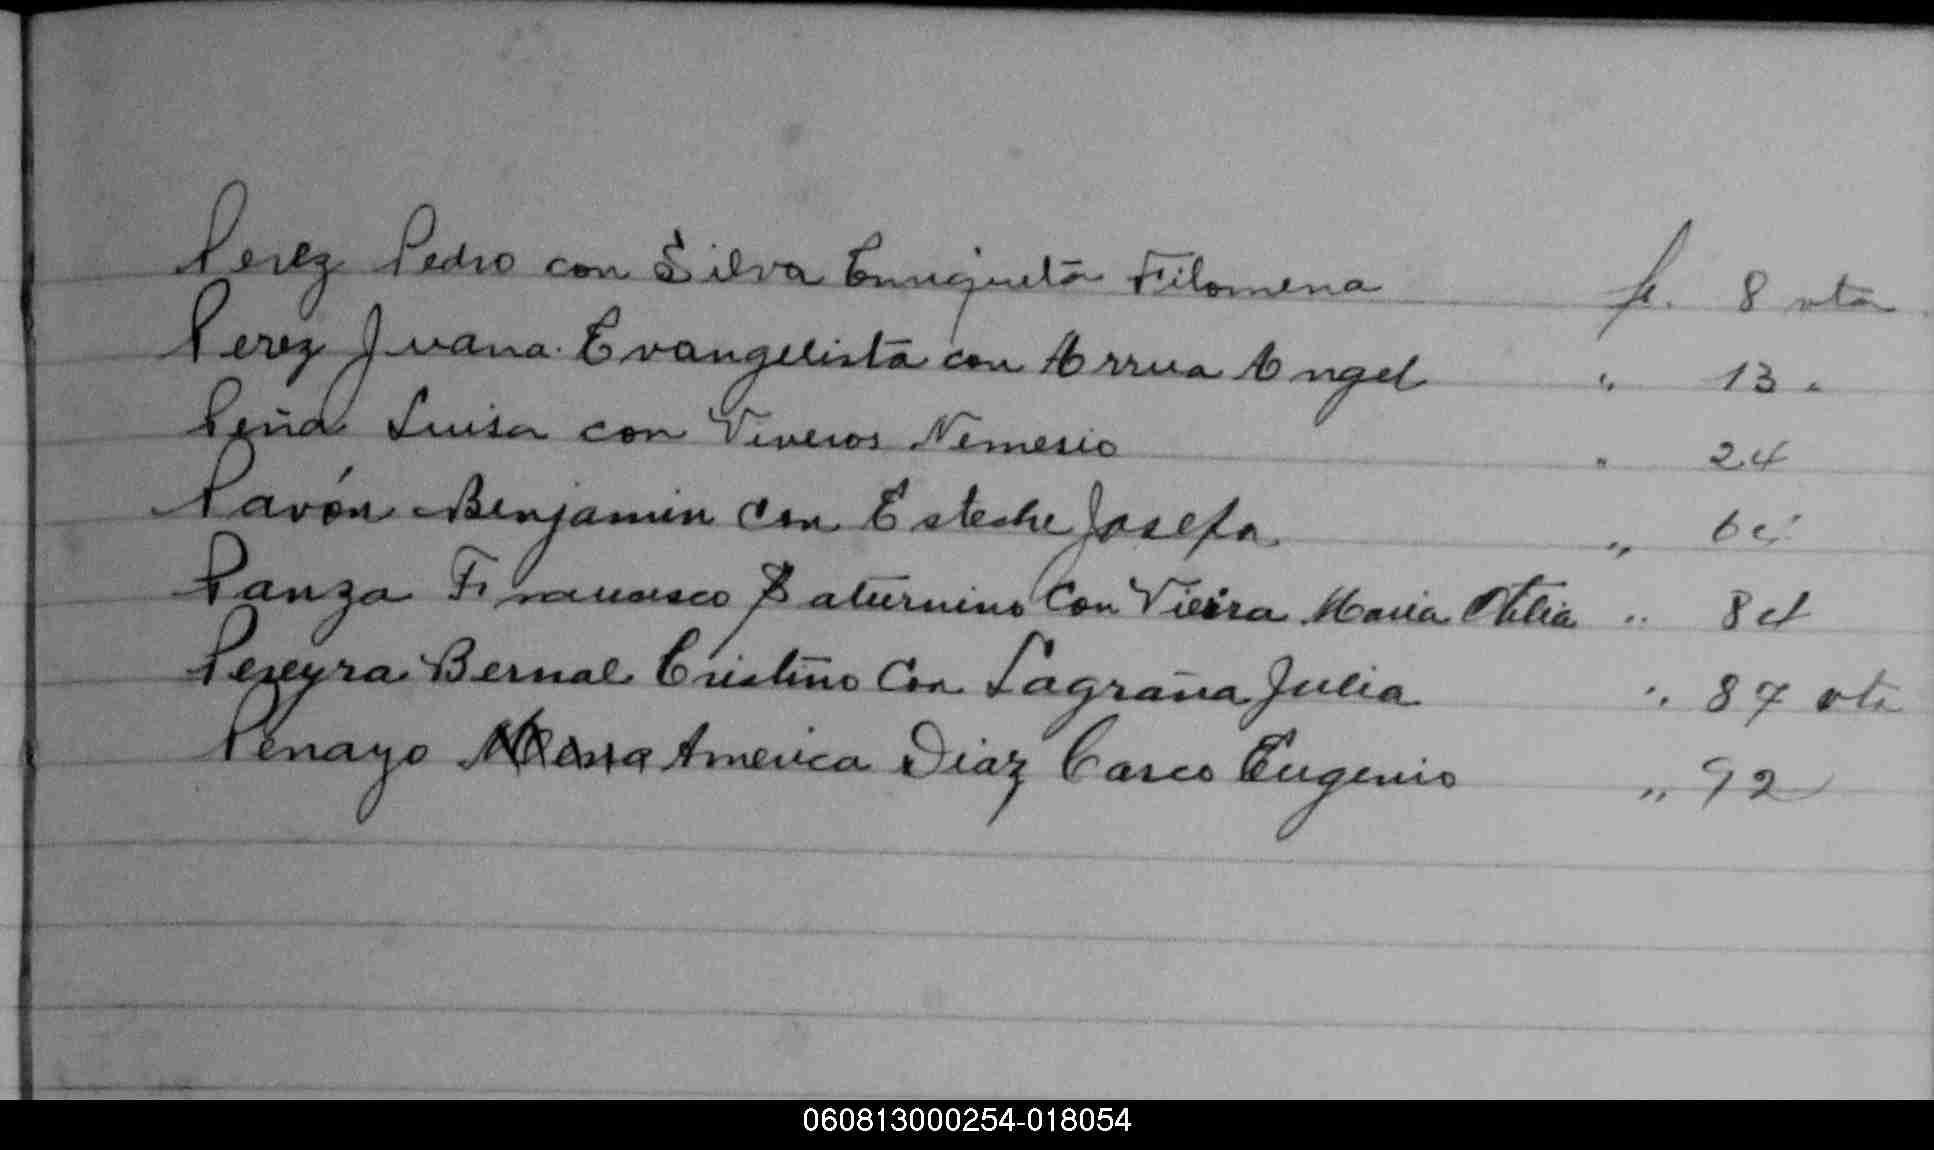 Perez Pedro con Silva Enriqueta Filomena f. 8 vta
Perez Juana Evangelista con Arrua Angel " 13 "
Peña Luisa con Viveros Nemesio " 24
Pavón Benjamin con Esteche Josefa " 64
Panza Francisco Saturnino con Vieira Maria Otilia " 84
Pereyra Bernal Cristino con Lagraña Julia " 87 vta
Penayo America Diaz Casco Eugenio " 92
060813000254-018054